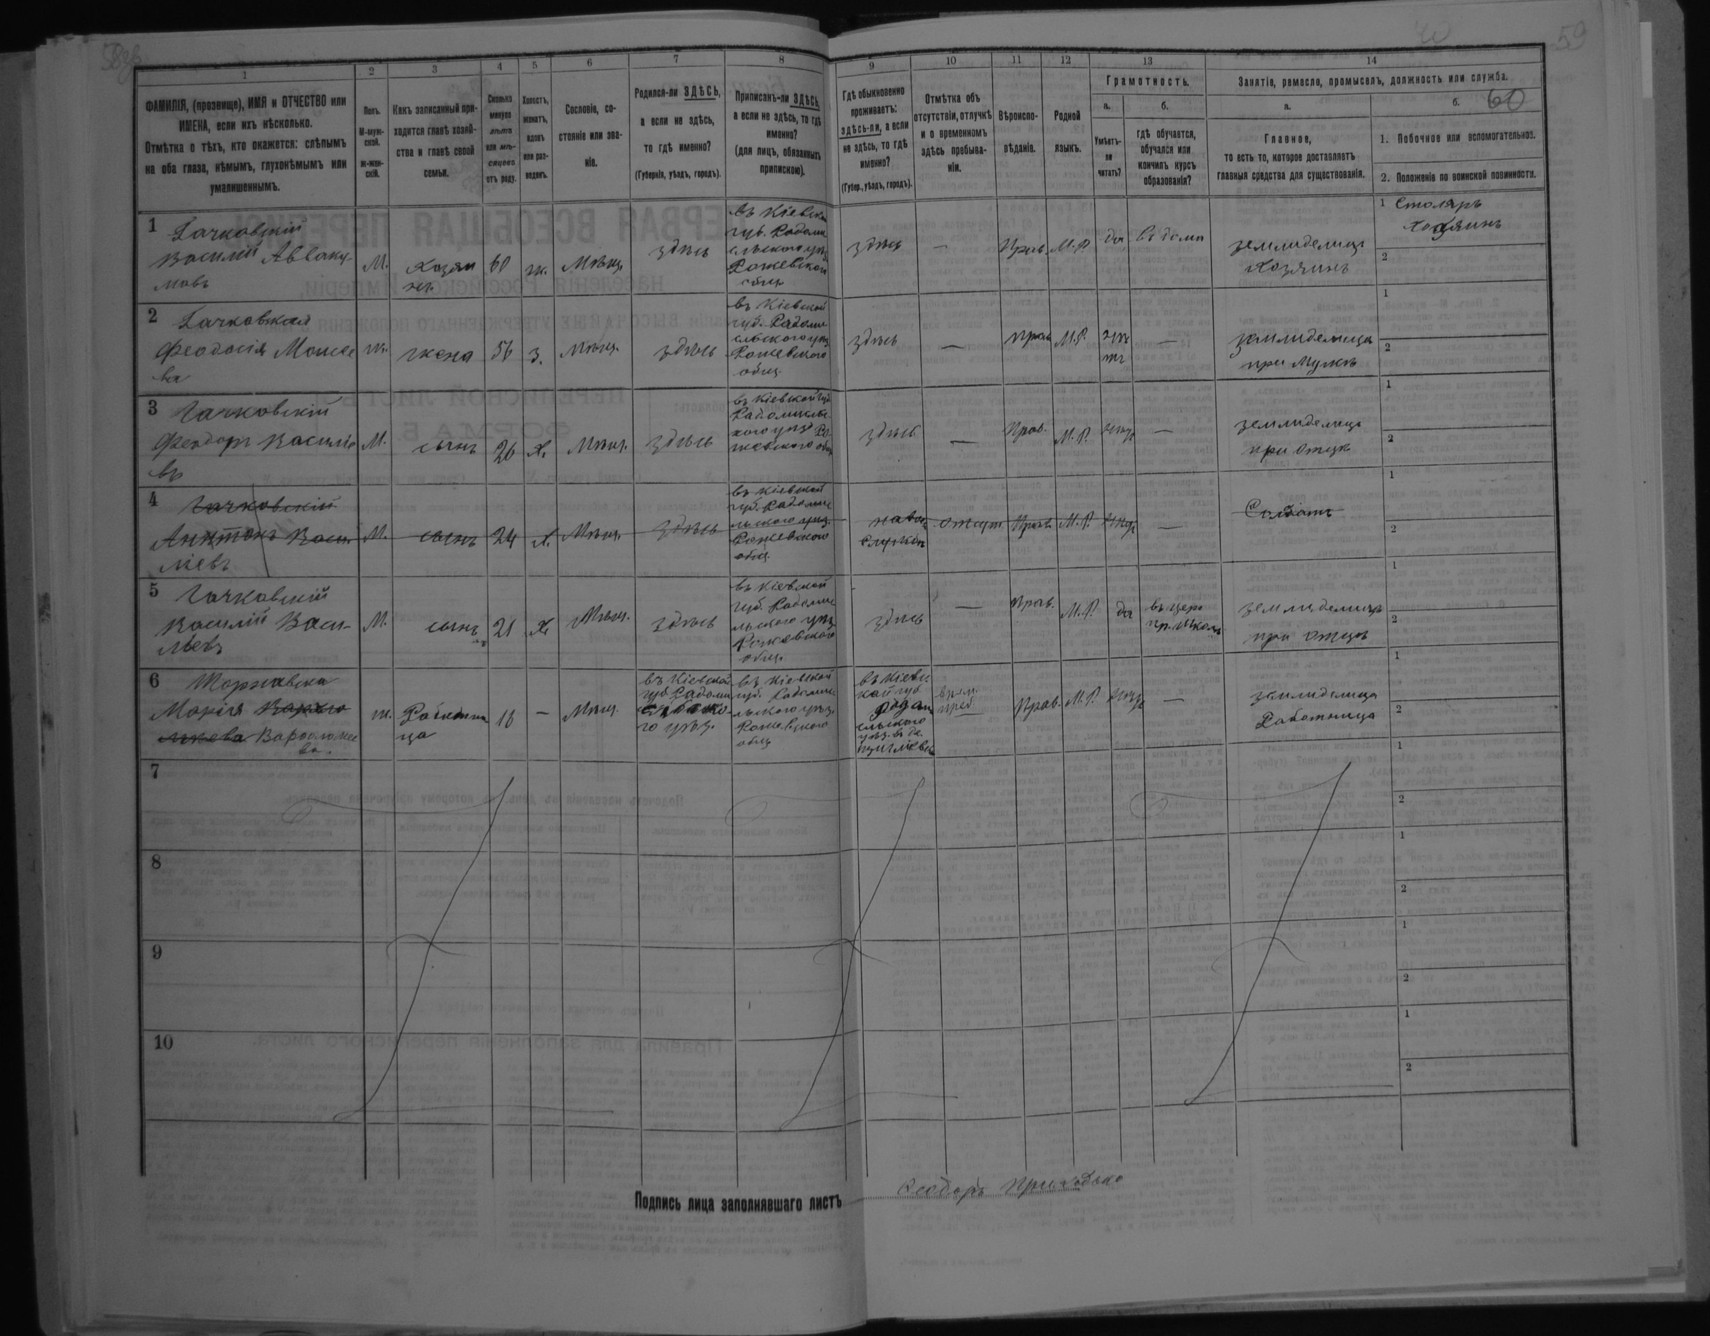 59
60
1
2
3
4
5
6
7
8
9
10
11
12
13
14
ФАМИЛІЯ, (прозвище), ИМЯ и ОТЧЕСТВО или
ИМЕНА, если ихъ нѣсколько.
Отмѣтка о тѣхъ, кто окажется: слѣпымъ
на оба глаза, нѣмымъ, глухонѣмымъ или
умалишеннымъ.
Полъ.
М-муж-
ской.
ж-жен-
скій.
Какъ записанный при-
ходится главѣ хозяй-
ства и главѣ своей
семьи.
Сколько
минуло
лѣтъ
или мѣ-
сяцевъ
отъ роду.
Холостъ,
женатъ,
вдовъ
или раз-
веденъ.
Сословіе, со-
стояніе или зва-
ніе.
Родился-ли ЗДѢСЬ,
а если не здѣсь,
то гдѣ именно?
(Губернія, уѣздъ, городъ).
Приписанъ-ли ЗДѢСЬ,
а если не здѣсь, то гдѣ
именно?
(для лицъ, обязанныхъ
припискою).
Гдѣ обыкновенно
проживаетъ:
здѣсь-ли, а если
не здѣсь, то гдѣ
именно?
(Губер., уѣздъ, городъ).
Отмѣтка объ
отсутствіи, отлучкѣ
и о временномъ
здѣсь пребыва-
ніи.
Вѣроиспо-
вѣданіе.
Родной
языкъ.
Грамотность.
а.
б.
Умѣетъ-
ли
читать?
гдѣ обучается,
обучался или
кончилъ курсъ
образованія?
Занятіе, ремесло, промыселъ, должность или служба.
а.
б.
Главное,
то есть то, которое доставляетъ
главныя средства для существованія.
1. Побочное или вспомогательное.
2. Положеніе по воинской повинности.
1 Гачковскій
Василій Авваку-
мовъ
М.
Хозяинъ
60
ж.
Мѣщ.
здѣсь
въ Кіевской
губ. Радомы
сльского уѣз.
Рожевского
общ.
здѣсь
—
Прав.
М.Р.
да
въ дома
земледелец
Хозяинъ
1 Столяръ
Хозяинъ
2
2 Гачковская
Феодосія Моисее
ва
ж.
жена
56
з.
Мѣщ.
здѣсь
въ Кіевской
губ. Радомы
сльского уѣз
Рожевского
общ.
здѣсь
—
Прав.
М.Р.
нѣ
тъ
—
земледелица
при Мужѣ
1
2
3 Гачковскій
Феодоръ Василіе
въ
М.
сынъ
26
Х.
Мѣщ.
здѣсь
здѣсь
—
Прав.
М.Р.
—
земледелец
при отцѣ
1
2
4 Гачковскій
Антонъ Васи-
ліевъ
М.
сынъ
24
Х.
Мѣщ.
здѣсь
въ Кіевской
губ. Радомы
льского уѣз.
Рожевского
общ.
отсут.
Прав.
М.Р.
—
Солдатъ
1
2
5 Гачковскій
Василій Васи-
льевъ
М.
сынъ
21
Х.
Мѣщ.
здѣсь
въ Кіевской
губ. Радомы
льского уѣз.
Рожевского
общ.
здѣсь
—
Прав.
М.Р.
да
въ церк
пр. школѣ
земледелецъ
при отцѣ
1
2
6
Марія
Варфоломее
ва.
ж.
Работни
ца
—
Мѣщ.
въ Кіевской
губ. Радомы
сльско-
го уѣз.
въ Кіевской
губ. Радомы
льского уѣз.
Рожевского
общ.
въ Кіевс
кой губ
Радом
сльского
врем.
преб.
Прав.
М.Р.
—
земледелица
Работница
1
2
7
1
2
8
1
2
9
1
2
10
1
2
Подпись лица заполнявшаго листъ
Феодоръ Приходько